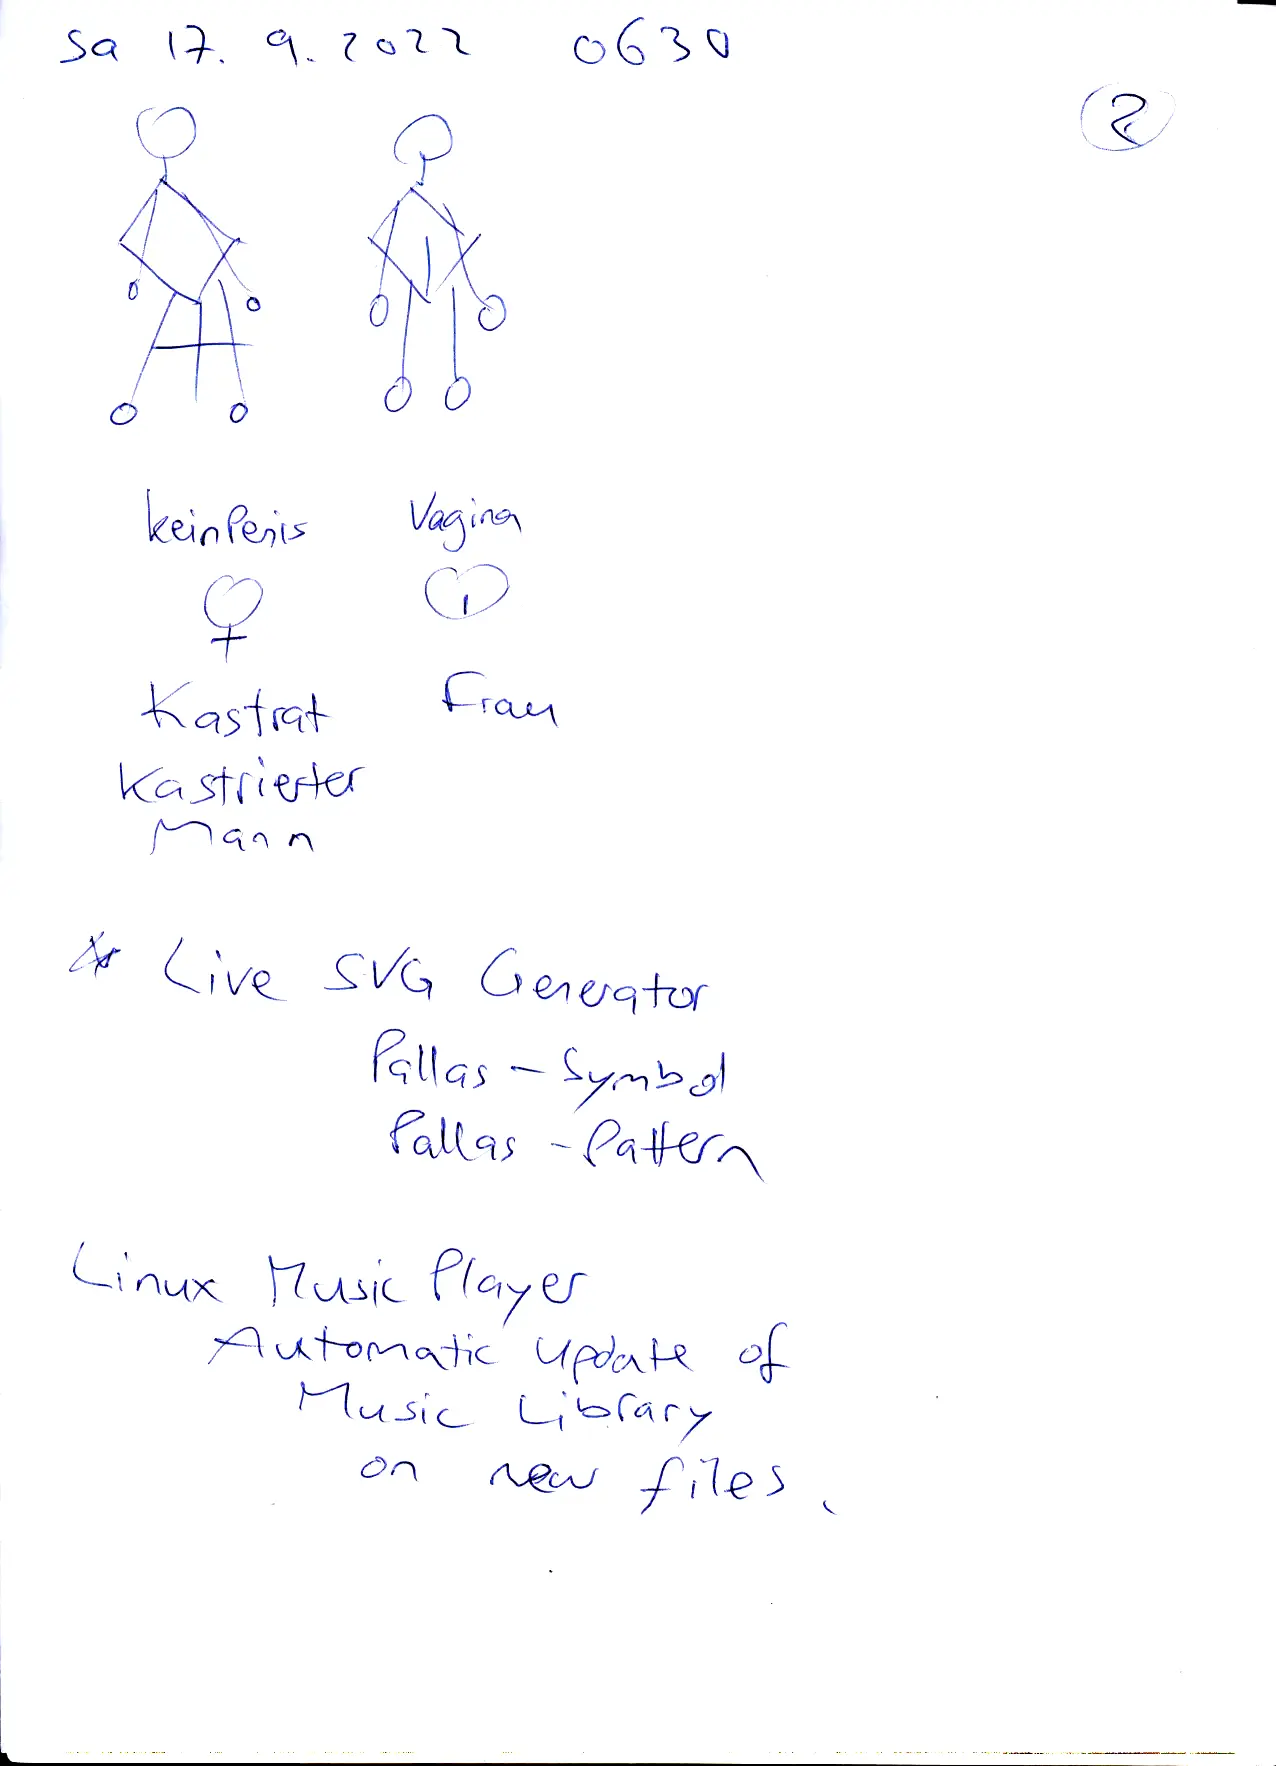 Sa 17. 9. 2022 0630
2
kein Penis Vagina
♀
Kastrat Frau
Kastrierter
Mann
* Live SVG Generator
Pallas - Symbol
Pallas - Pattern
Linux Music Player
Automatic update of
Music Library
on new files.